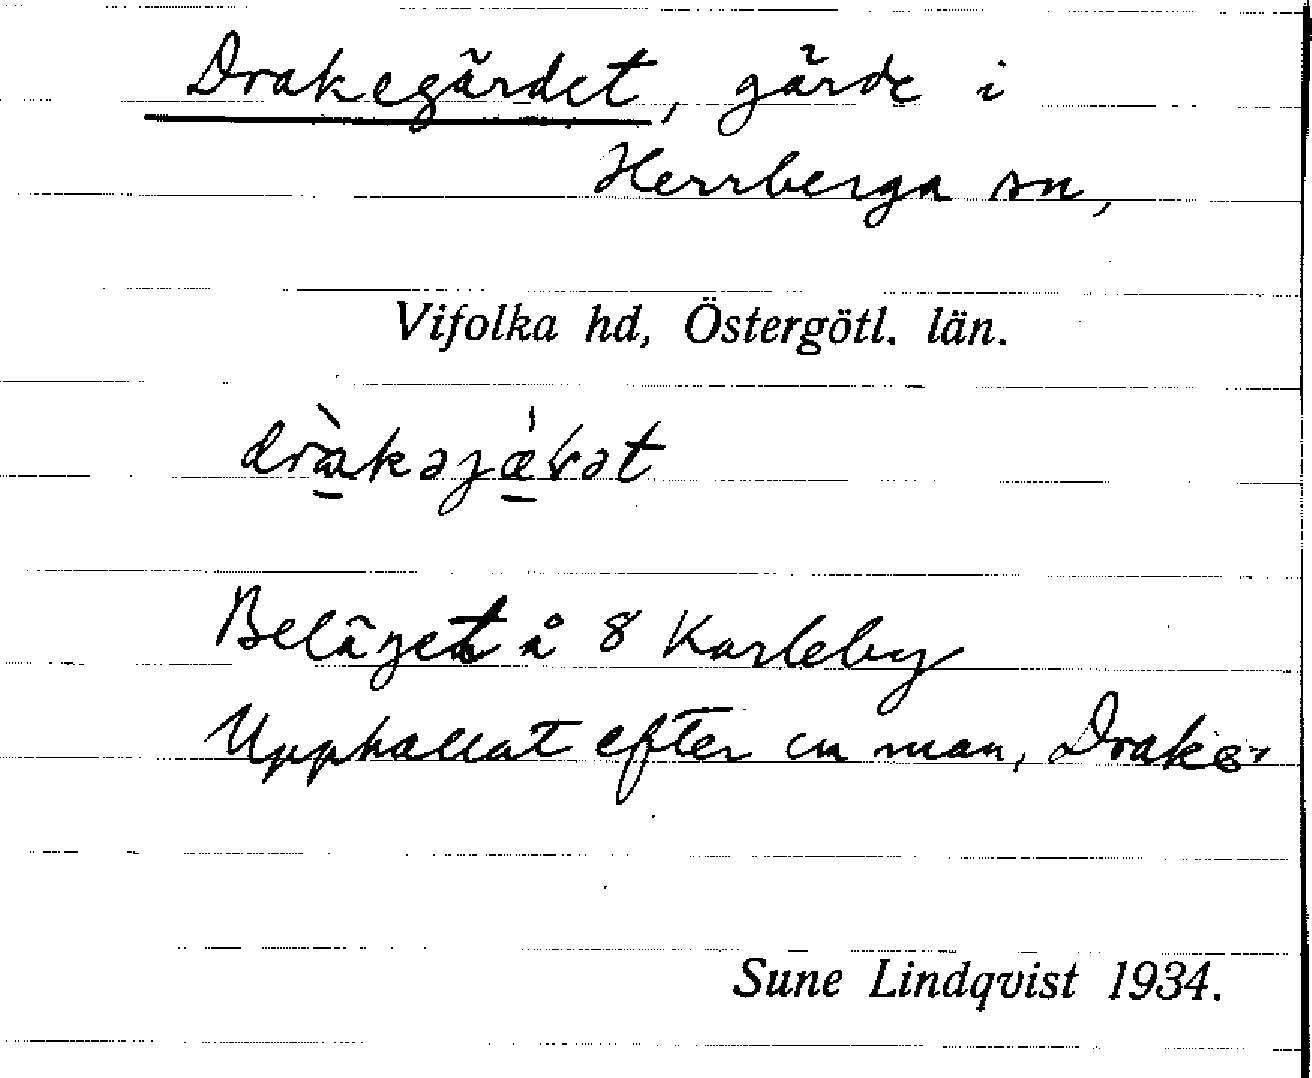 Drakegärdet, gärde i
Herrberga sn,
Vifolka hd, Östergötl. län.
Beläget å 8 Karleby
Upphallat efter en man, Drake.
Sune Lindqvist 1934.